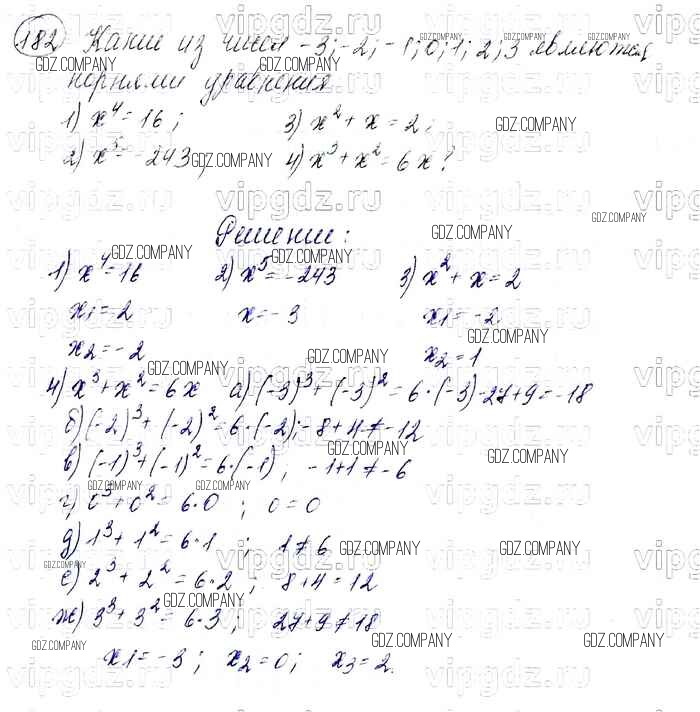 182 Какие из чисел -3; -2; -1; 0; 1; 2; 3 являются
корнями уравнения
1) x⁴ = 16; 3) x² + x = 2;
2) x⁵ = -243; 4) x³ + x² = 6x?
Решение:
1) x⁴ = 16 2) x⁵ = -243 3) x² + x = 2
x₁ = 2 x = -3 x₁ = -2
x₂ = -2 x₂ = 1
4) x³ + x² = 6x а) (-3)³ + (-3)² = 6·(-3) -27 + 9 = -18
б) (-2)³ + (-2)² = 6·(-2); -8 + 4 ≠ -12
в) (-1)³ + (-1)² = 6·(-1); -1 + 1 ≠ -6
г) 0³ + 0² = 6·0; 0 = 0
д) 1³ + 1² = 6·1; 1 ≠ 6
е) 2³ + 2² = 6·2; 8 + 4 = 12
ж) 3³ + 3² = 6·3; 27 + 9 ≠ 18
x₁ = -3; x₂ = 0; x₃ = 2.
vipgdz.ru
GDZ.COMPANY